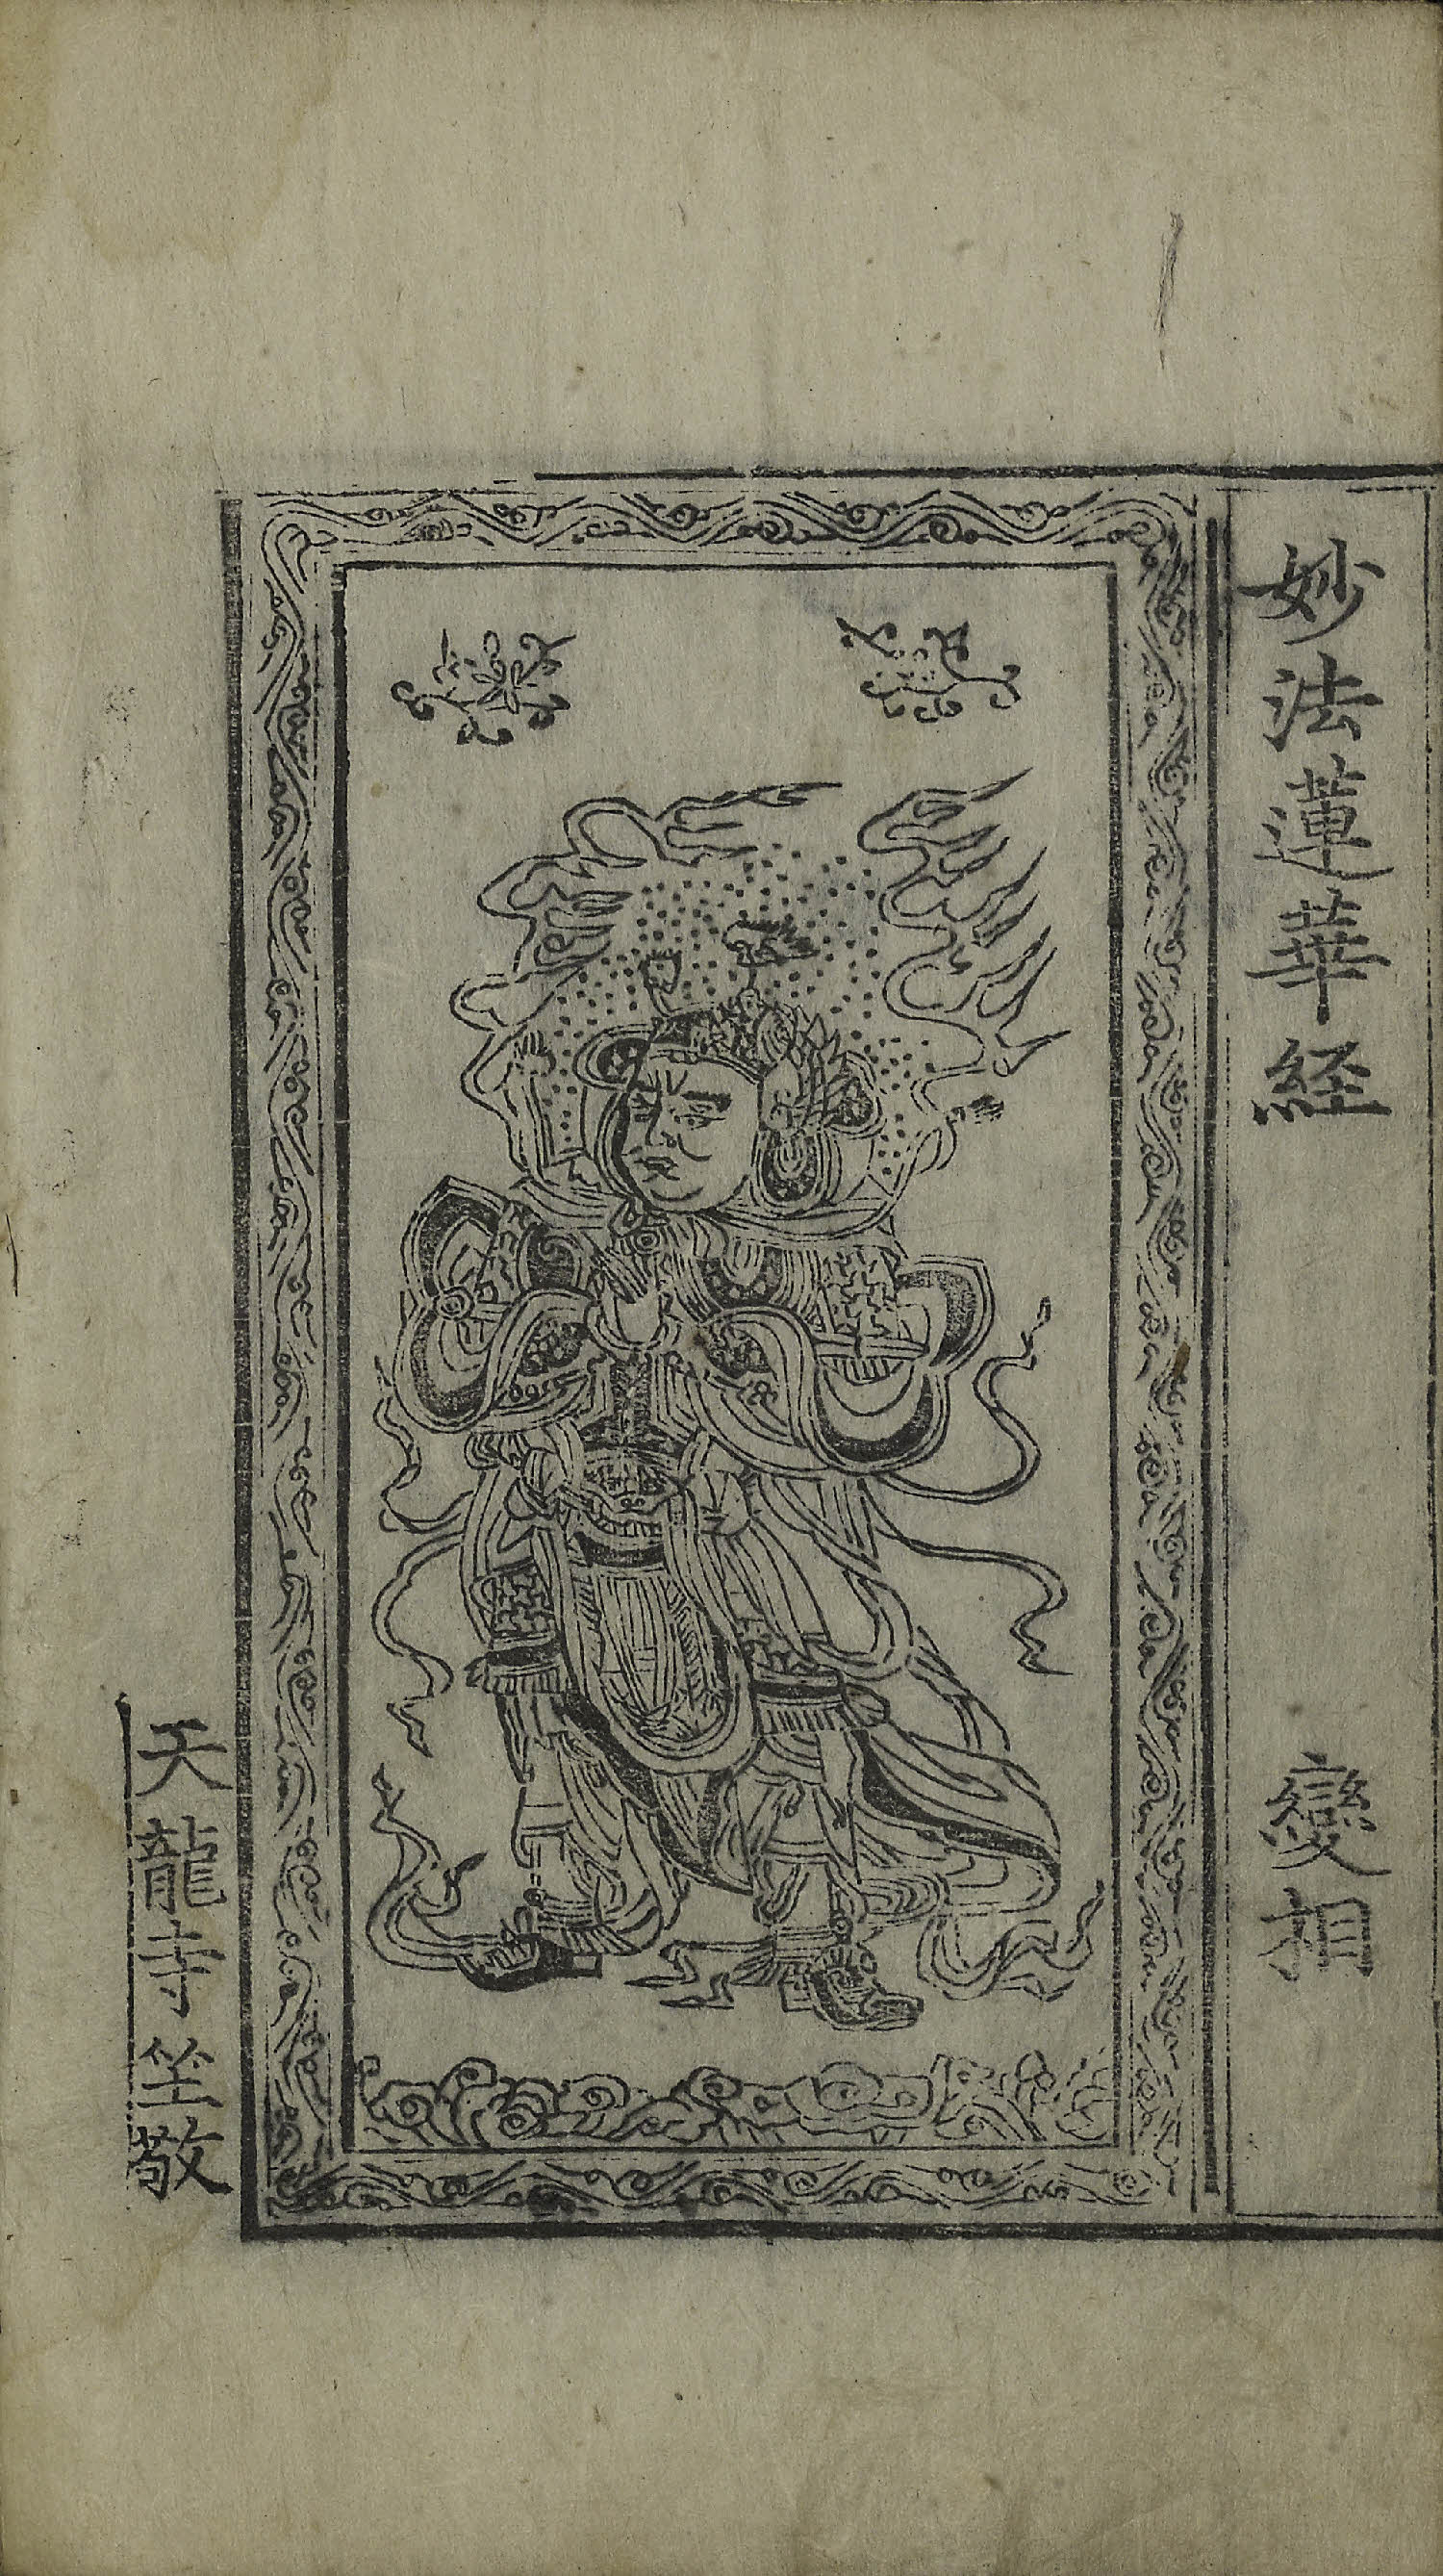 妙法蓮華経　變相
天龍寺筌敬